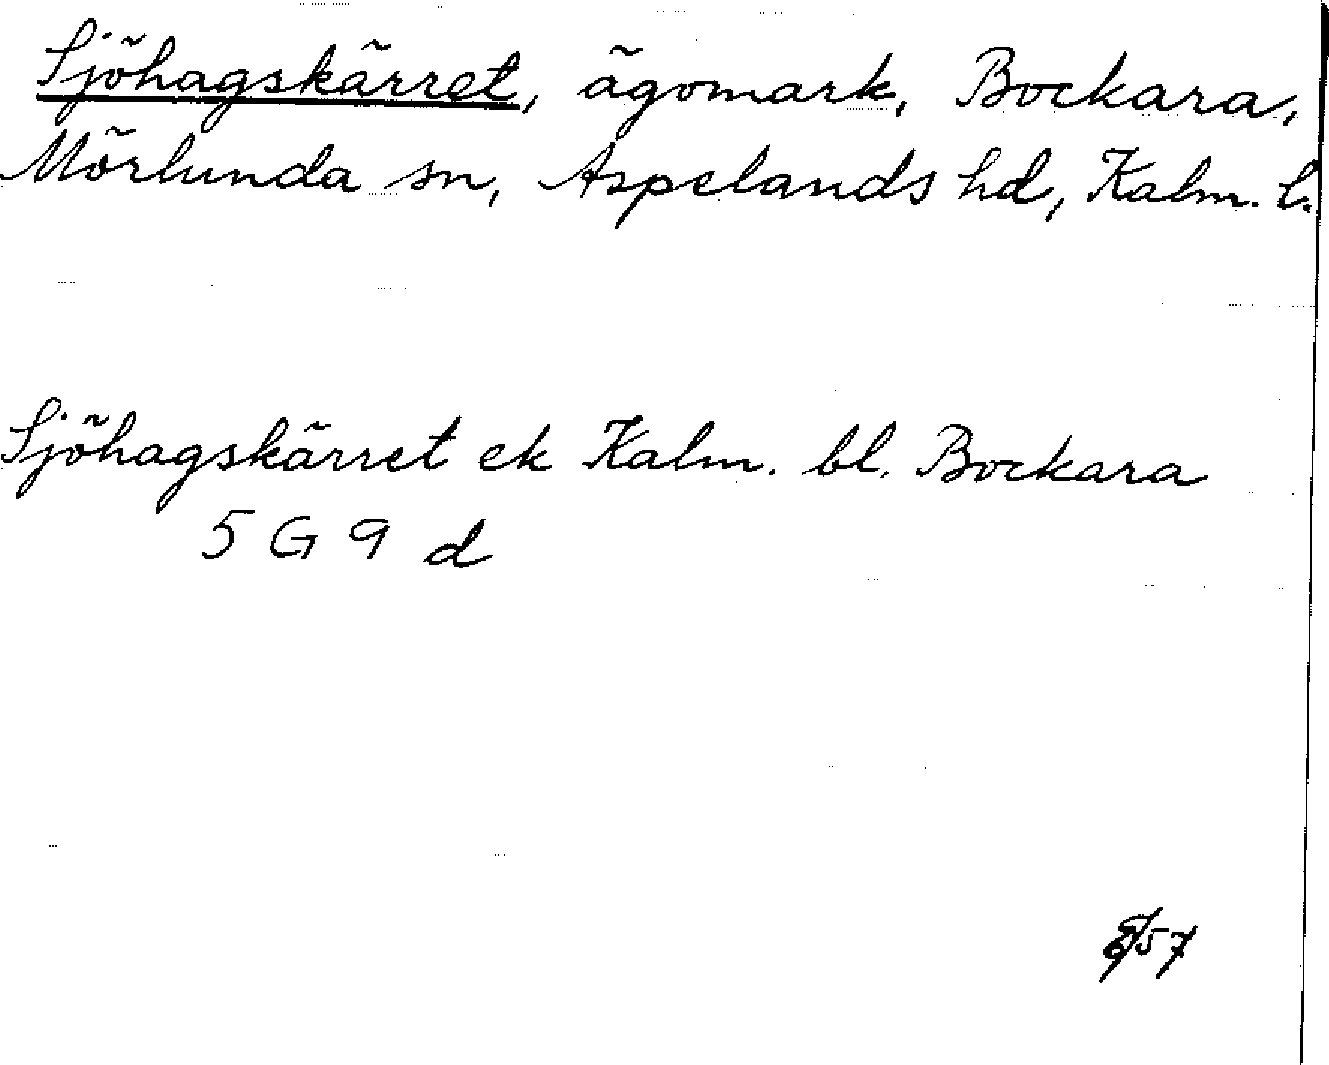 Sjöhagskärret, ägomark, Bockara,
Mörlunda sn, Aspelands hd, Kalm. l.
Sjöhagskärret ek Kalm. bl. Bockara
5 G 9 d
/57